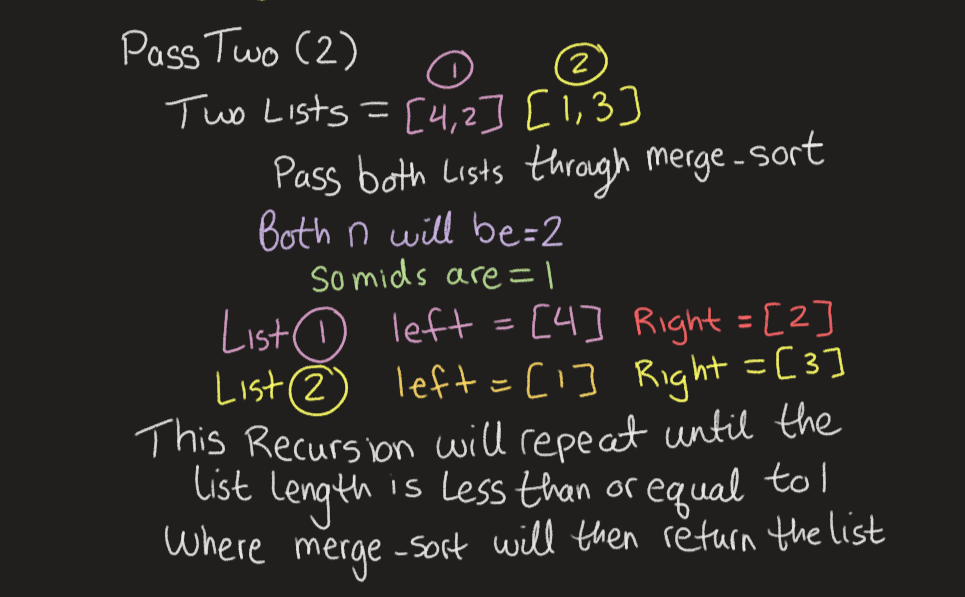 Pass Two (2)
① ②
Two Lists = [4,2] [1,3]
Pass both Lists through merge-sort
Both n will be=2
So mids are = 1
List① left = [4] Right = [2]
List② left = [1] Right = [3]
This Recursion will repeat until the
list length is Less than or equal to 1
Where merge-sort will then return the list